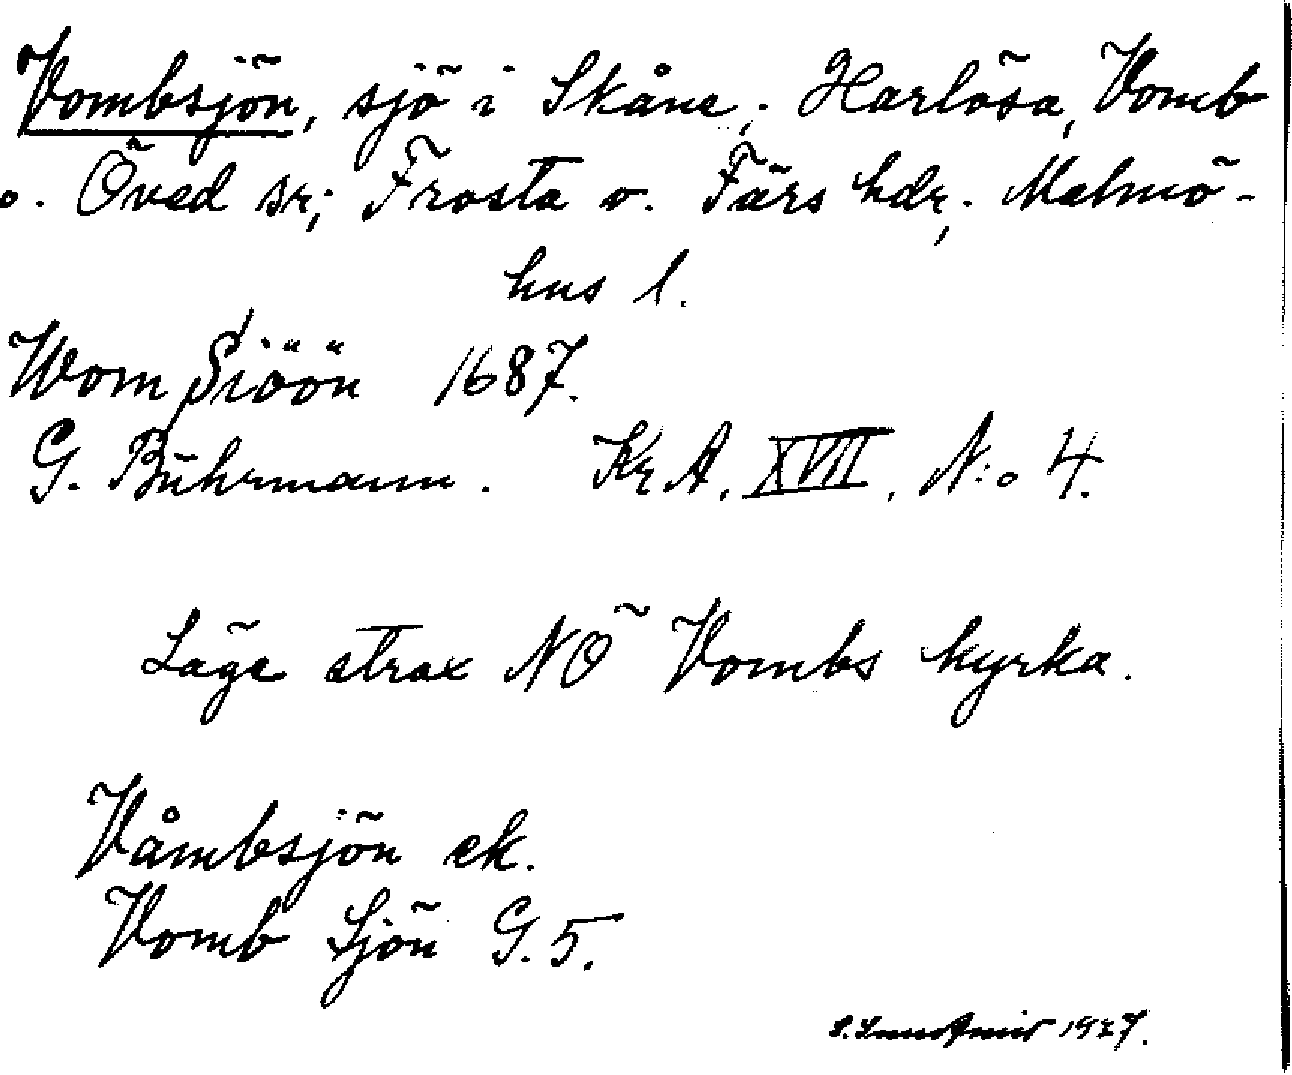 Vombsjön, sjö i Skåne; Harlösa, Vomb
o. Öved sr; Frosta o. Färs hdr; Malmö-
hus l.
Wom Siöön 1687.
G. Buhrmann. Kr A. XVII. N:o 4.
Läge strax NÖ Vombs kyrka.
Våmbsjön ek.
Vomb Sjön G. 5.
1927.